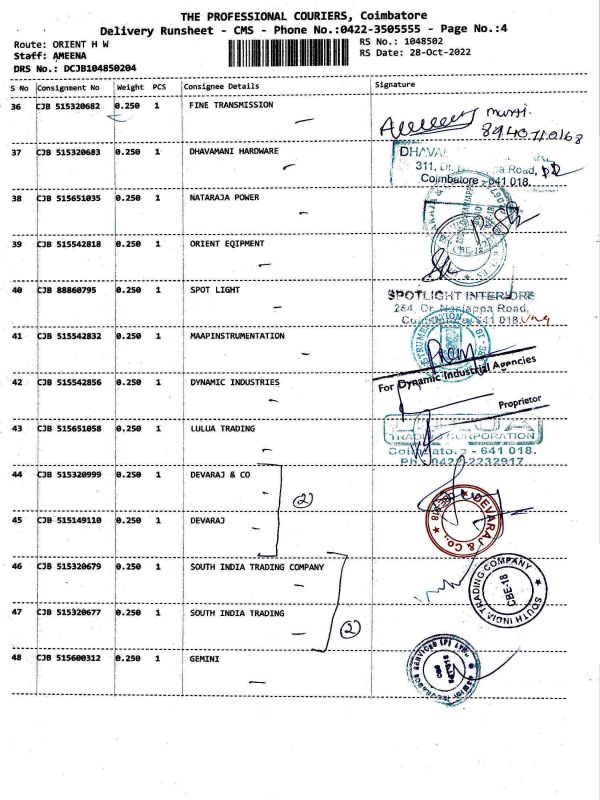 THE PROFESSIONAL COURIERS, Coimbatore
Delivery Runsheet - CMS - Phone No.:0422-3505555 - Page No.:4
Route: ORIENT H W
RS No.: 1048502
Staff: AMEENA
RS Date: 28-Oct-2022
DRS No.: DCJB104850204
S No Consignment No Weight PCS Consignee Details Signature
36 CJB 515320682 0.250 1 FINE TRANSMISSION
8940710168
37 CJB 515320683 0.250 1 DHAVAMANI HARDWARE
Road,
Coimbatore - 641 018.
38 CJB 515651035 0.250 1 NATARAJA POWER
39 CJB 515542818 0.250 1 ORIENT EQIPMENT
CBE-18
40 CJB 88860795 0.250 1 SPOT LIGHT
SPOTLIGHT INTERIORS
284, Dr. Nanjappa Road,
641 018.
41 CJB 515542832 0.250 1 MAAPINSTRUMENTATION
42 CJB 515542856 0.250 1 DYNAMIC INDUSTRIES
For Dynamic Industrial Agencies
Proprietor
43 CJB 515651058 0.250 1 LULUA TRADING
TRADING CORPORATION
Coimbatore - 641 018.
Ph: 0422-2232917
44 CJB 515320999 0.250 1 DEVARAJ & CO
(2)
DEVARAJ & CO.
45 CJB 515149110 0.250 1 DEVARAJ
46 CJB 515320679 0.250 1 SOUTH INDIA TRADING COMPANY
SOUTH INDIA TRADING COMPANY
CBE-18
47 CJB 515320677 0.250 1 SOUTH INDIA TRADING
(2)
48 CJB 515600312 0.250 1 GEMINI